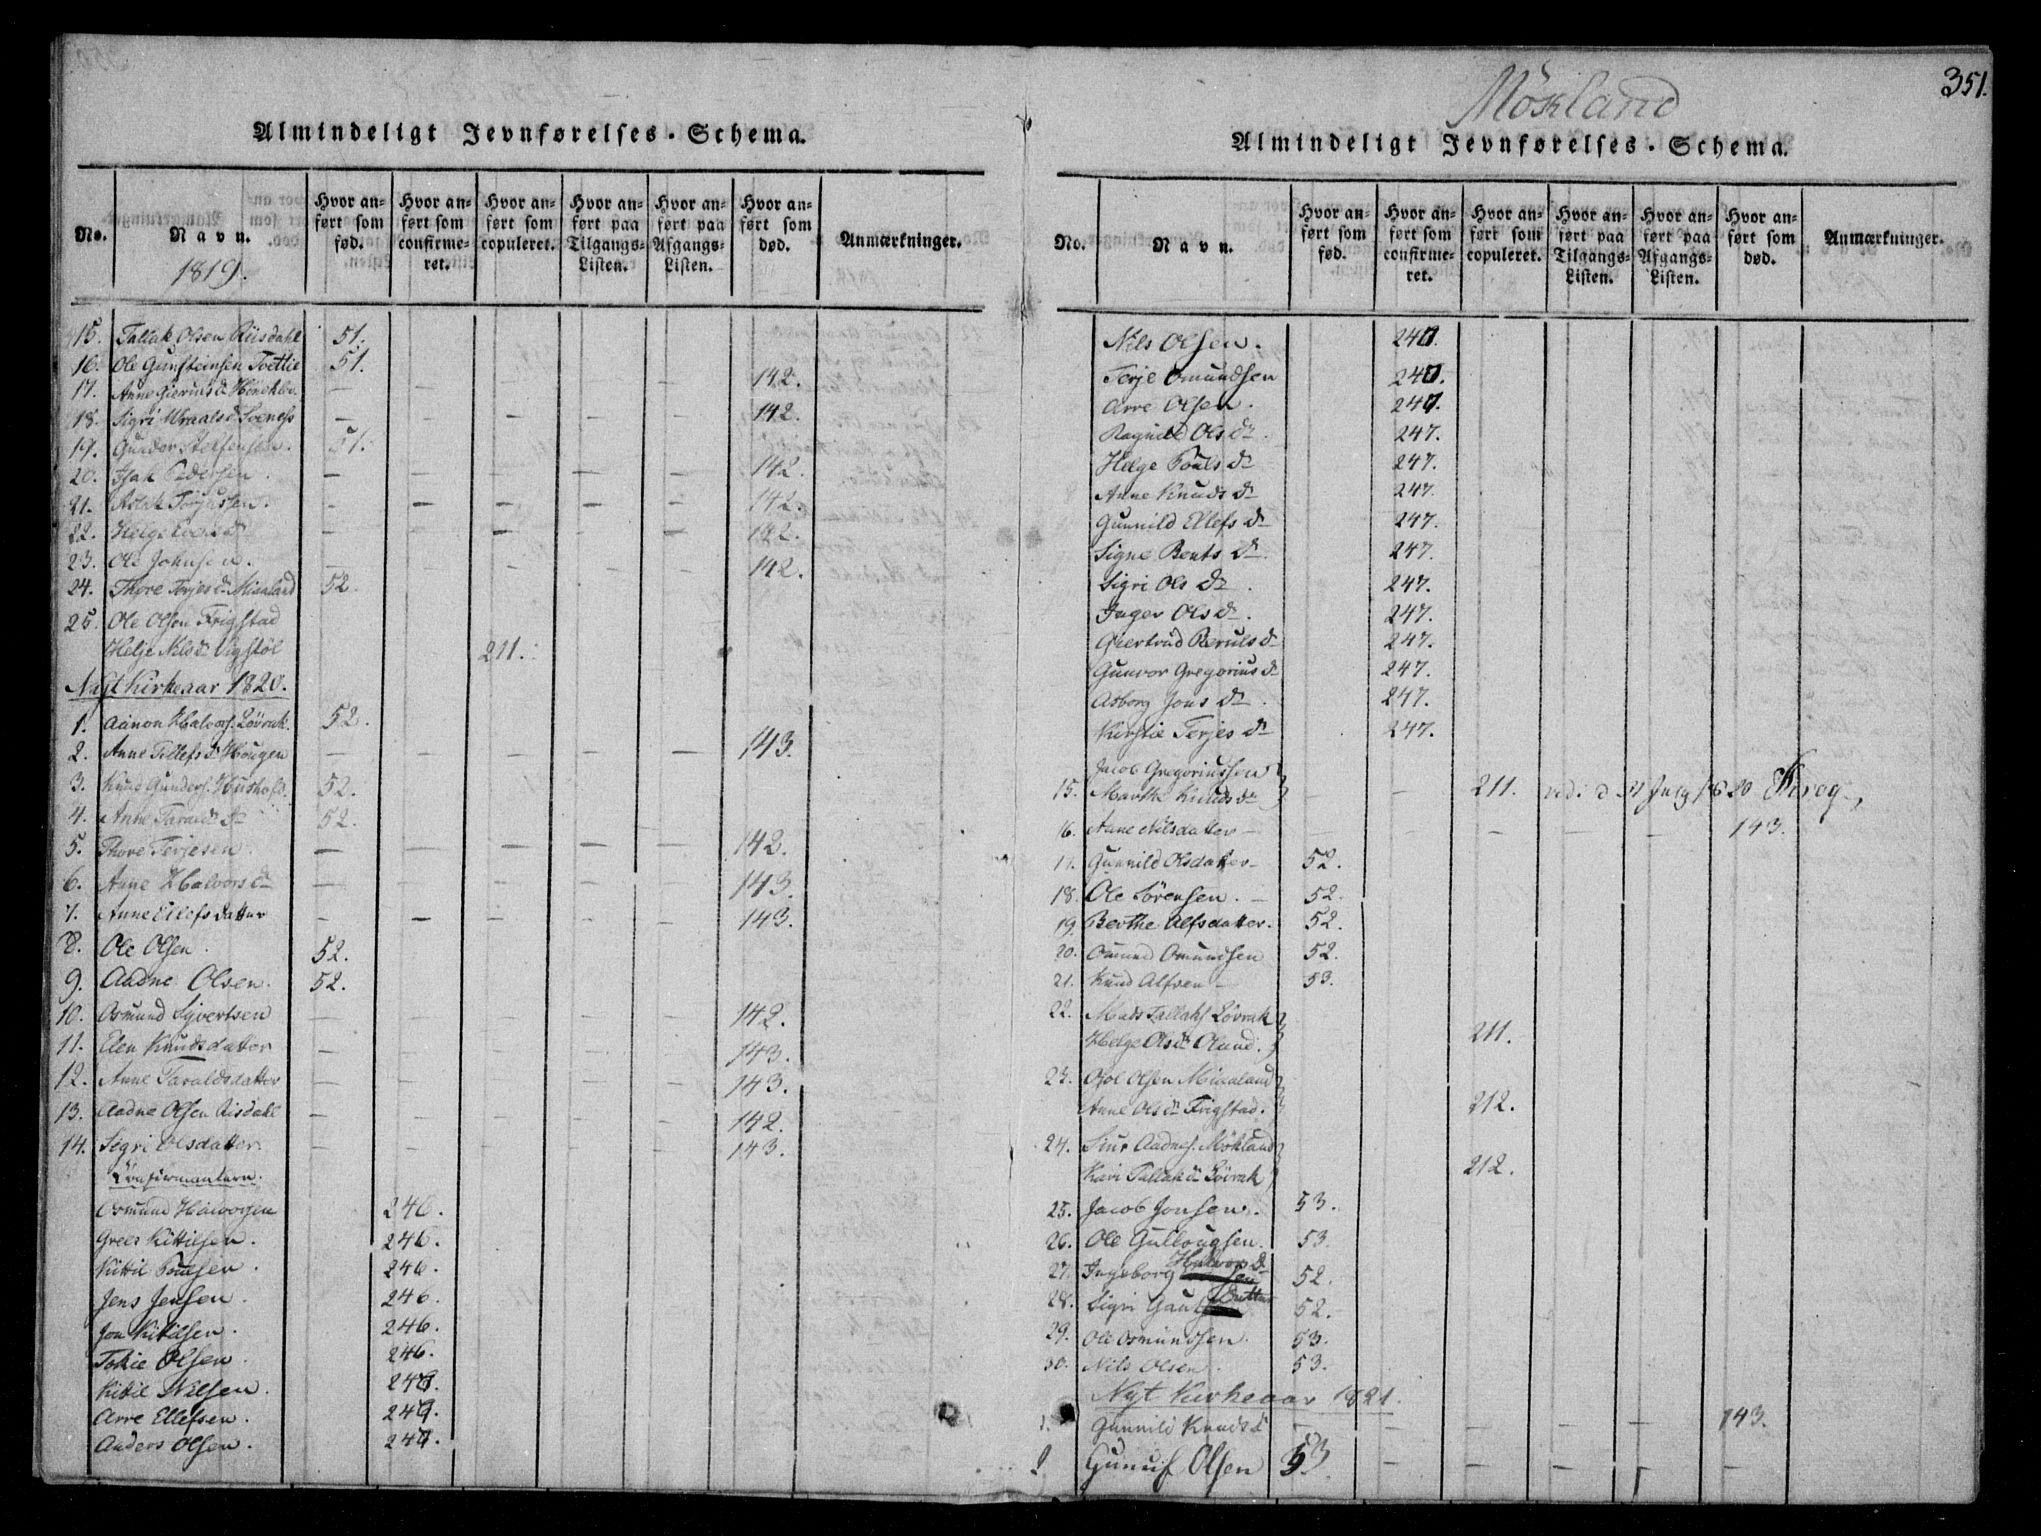 Almindeligt Jevnførelses-Schema.
No.
Navn.
1819.
Hvor anført som fød.
Hvor anført som confirmeret.
Hvor anført som copuleret.
Hvor anført paa Tilgangs-Listen.
Hvor anført paa Afgangs-Listen.
Hvor anført som død.
Anmærkninger.
15. Tallak Olsen Riisdahl 51.
16. Ole Gunsteinsen Tvettie 51.
17. Anne Gierulfs Dr — — — — — 142.
18. Sigri — — — — — 142.
19. Gundor Steffensen. 51.
20. Isak Pedersen. — — — — — 142.
21. Aslak — — — — — 142.
22. Helge Dr — — — — — 142.
23. Ole Johnsen. — — — — — 142.
24. Thore Terjes Dr Misaland 52.
25. Ole Olsen Frigstad
Helje Nils Dr Vigstøl 211.
Nyt Kirkeaar 1820.
1. Aanon Halvors. Løvrak. 52.
2. Anne Tellefs Dr Hougen — — — — — 143.
3. Knud Gunders. 52.
4. Anne Taralds Dr 52.
5. Thore Terjesen. — — — — — 142.
6. Anne Halvors Dr — — — — — 143.
7. Anne Ellefsdatter — — — — — 143.
8. Ole Olsen. 52.
9. Aadne Olsen. 52.
10. Osmund Syvertsen — — — — — 142.
11. Elen Knudsdatter — — — — — 143.
12. Anne Taraldsdatter — — — — — 143.
13. Aadne Olsen Risdahl — — — — — 142.
14. Sigri Olsdatter. — — — — — 143.
Confirmantern.
Osmund Halvorsen 246.
Grels Kittilsen. 246.
Kittil Poulsen. 246.
Jens Jensen. 246.
Jon Kittilsen. 246.
Tokie Olsen. 246.
Kittil Nilsen.
Arre Ellefsen.
Anders Olsen.
351.
Møskland
Almindeligt Jevnførelses-Schema.
No.
Navn.
Hvor anført som fød.
Hvor anført som confirmeret.
Hvor anført som copuleret.
Hvor anført paa Tilgangs-Listen.
Hvor anført paa Afgangs-Listen.
Hvor anført som død.
Anmærkninger.
Nils Olsen.
Terje Omundsen
Arre Olsen.
Ragnild Ols Dr. 247.
Helge Pouls Dr 247.
Anne Knuds Dr 247.
Gunnild Ellefs Dr 247.
Signe Bents Dr. 247.
Sigri Ols Dr. 247.
Inger Ols Dr. 247.
Giertrud Beruls Dr 247.
Gunvor Gregorius Dr 247.
Asborg Jons Dr. 247.
Kirstie Terjes Dr 247.
Jacob Gregoriussen
15. Marthe Knuds Dr — — 211.
16. Anne Nilsdatter — — — — — — 143.
17. Gunnild Olsdatter — 52.
18. Ole Sørensen. — 52.
19. Berthe Alfsdatter. 52.
20. Osmund Omundsen 52.
21. Knud Alfsen — 53.
22. Mads Tallaks. Løvrak
Helge Ols Dr 211.
23. Olsen Misaland
Anne Ols Dr Frigstad. 212.
24. Siur Aadnes. Møkland
Kari Tallak Dr Løvrak 212.
25. Jacob Jonsen. 53.
26. Ole Gullougsen. 53.
27. Ingeborg Halvors Dr 52.
28. Sigri Gautsdatter 52.
29. Ole Osmundsen. 53.
30. Nils Olsen. 53.
Nyt Kirkeaar 1821.
1. Gunnild Knuds Dr — — — — — 143.
Gunuf Olsen 53. — — — —